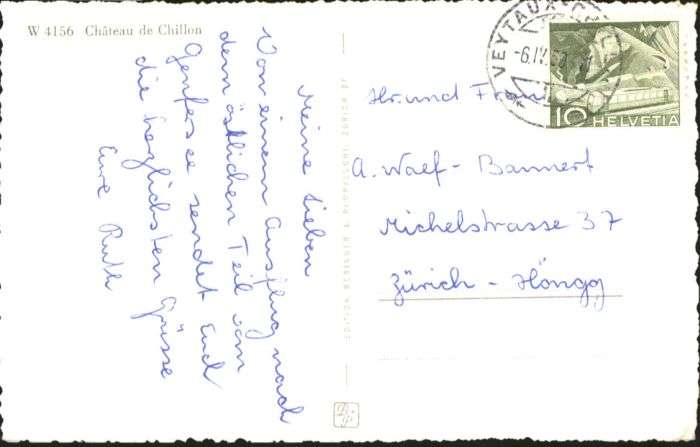 W 4156 Château de Chillon
Meine Lieben
Von einem Ausflug nach
dem östlichen Teil vom
Genfersee sendet Euch
die herzlichsten Grüsse
Eure Ruth
VEYTAUX-CH
-6.IV.
10 HELVETIA
Hr. und Frau
A. Waef-Bannert
Michelstrasse 37
Zürich-Höngg